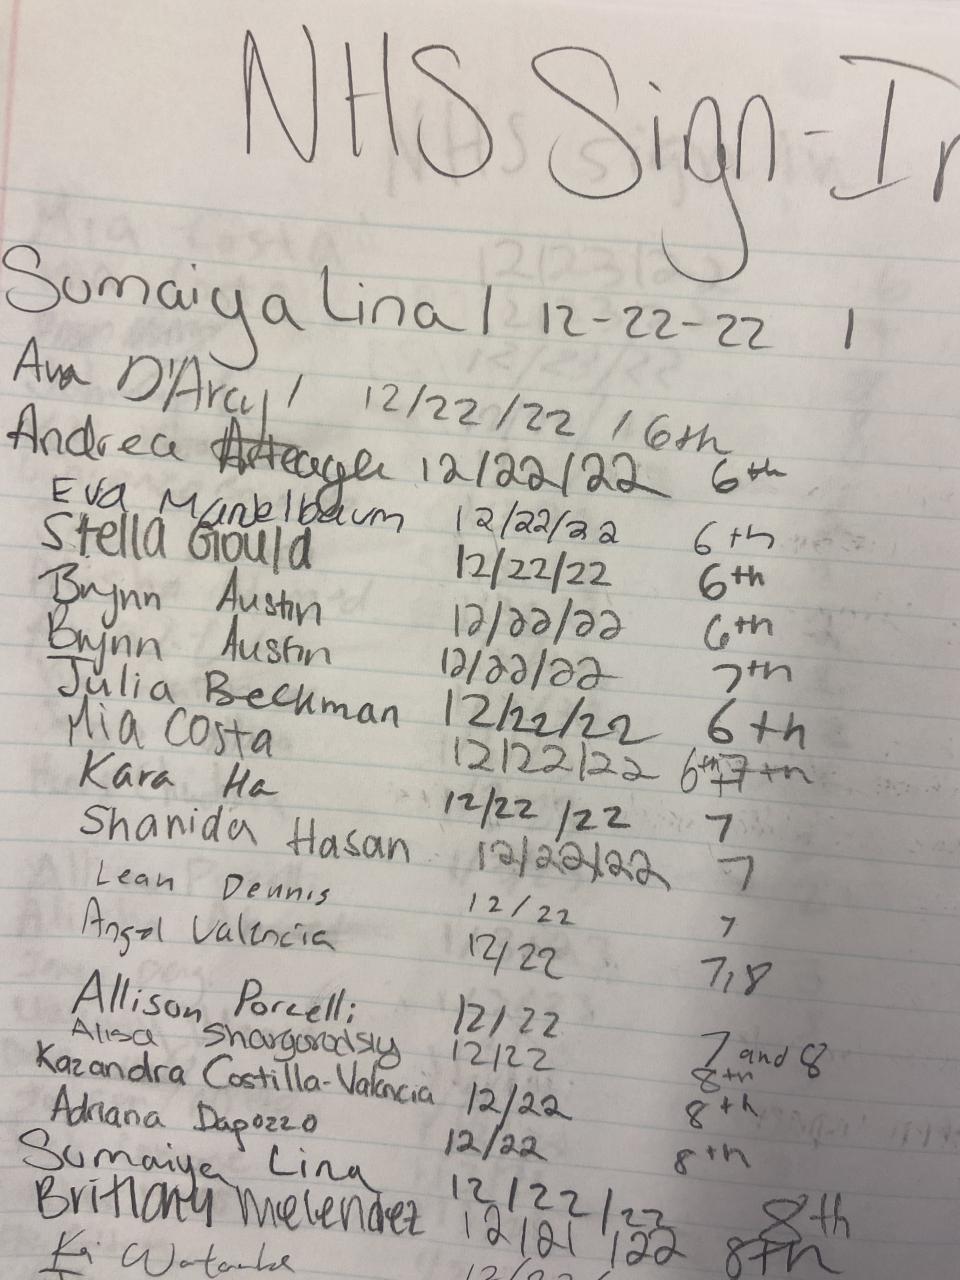 NHS Sign-In
Sumaiya Lina / 12-22-22 1
Ava D'Arcy / 12/22/22 / 6th
Andrea Arteaga 12/22/22 6th
Eva Mandelbaum 12/22/22 6th
Stella Gould 12/22/22 6th
Brynn Austin 12/22/22 6th
Brynn Austin 12/22/22 7th
Julia Beckman 12/22/22 6th
Mia Costa 12/22/22 6th 7th
Kara Ha 12/22/22 7
Shanida Hasan 12/22/22 7
Lean Dennis 12/22 7
Angel Valencia 12/22 7,8
Allison Porcelli 12/22 7 and 8
Alisa Shargorodsky 12/22 8th
Kazandra Costilla-Valencia 12/22 8th
Adriana Dapozzo 12/22 8th
Sumaiya Lina 12/22/22 8th
Brittany Melendez 12/21/22 8th
Kai Watanabe